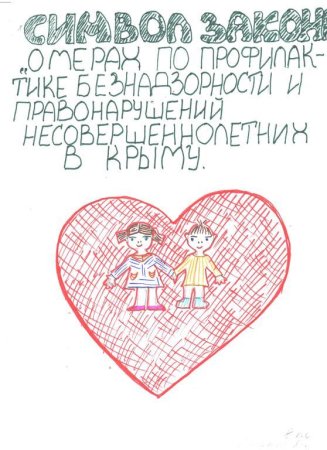 СИМВОЛ ЗАКОН
О МЕРАХ ПО ПРОФИЛАК-
"ТИКЕ БЕЗНАДЗОРНОСТИ И
ПРАВОНАРУШЕНИЙ
НЕСОВЕРШЕННОЛЕТНИХ
В КРЫМУ.